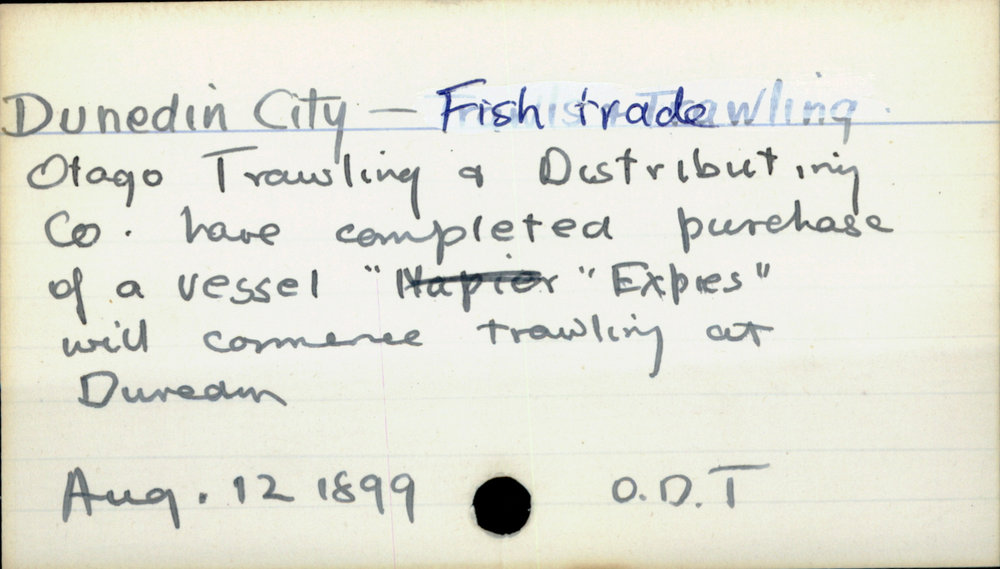 Dunedin City — Fish trade Trawling
Otago Trawling & Distributing
Co. have completed purchase
of a vessel "Napier "Expres"
will commence trawling at
Dunedin
Aug. 12 1899 O.D.T